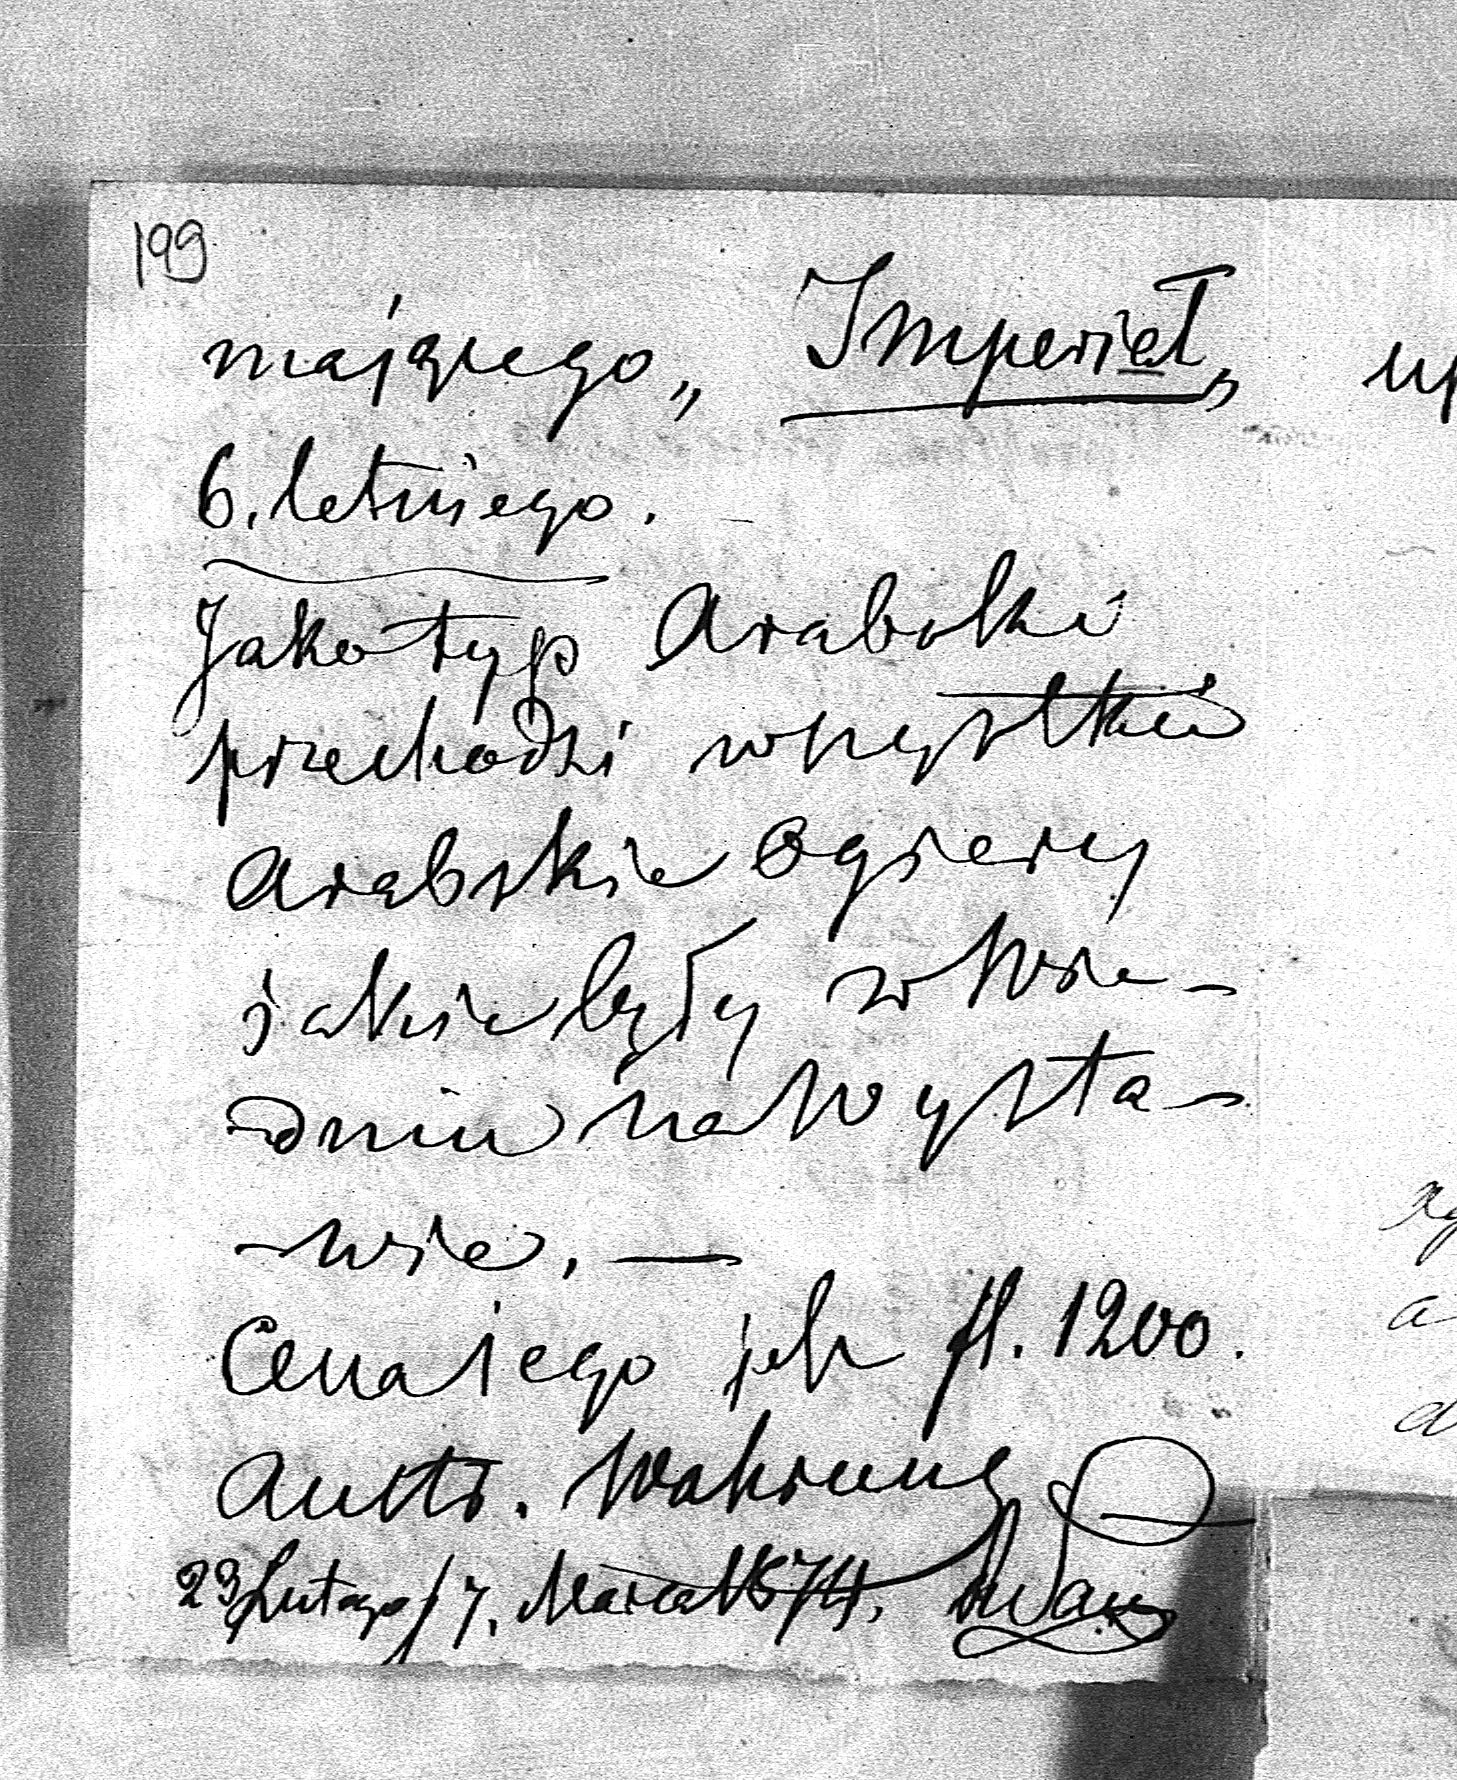 199
mającego „Imperiał„
6. letniego.
Jako typ Arabski
przechodzi wszystkie
Arabskie Ogiery
jakie były w Wie-
-dniu na Wysta-
-wie. —
Cena jego jest fl. 1200.
Austr. Wahrung
23 Lutego / 7. Marca 1874.